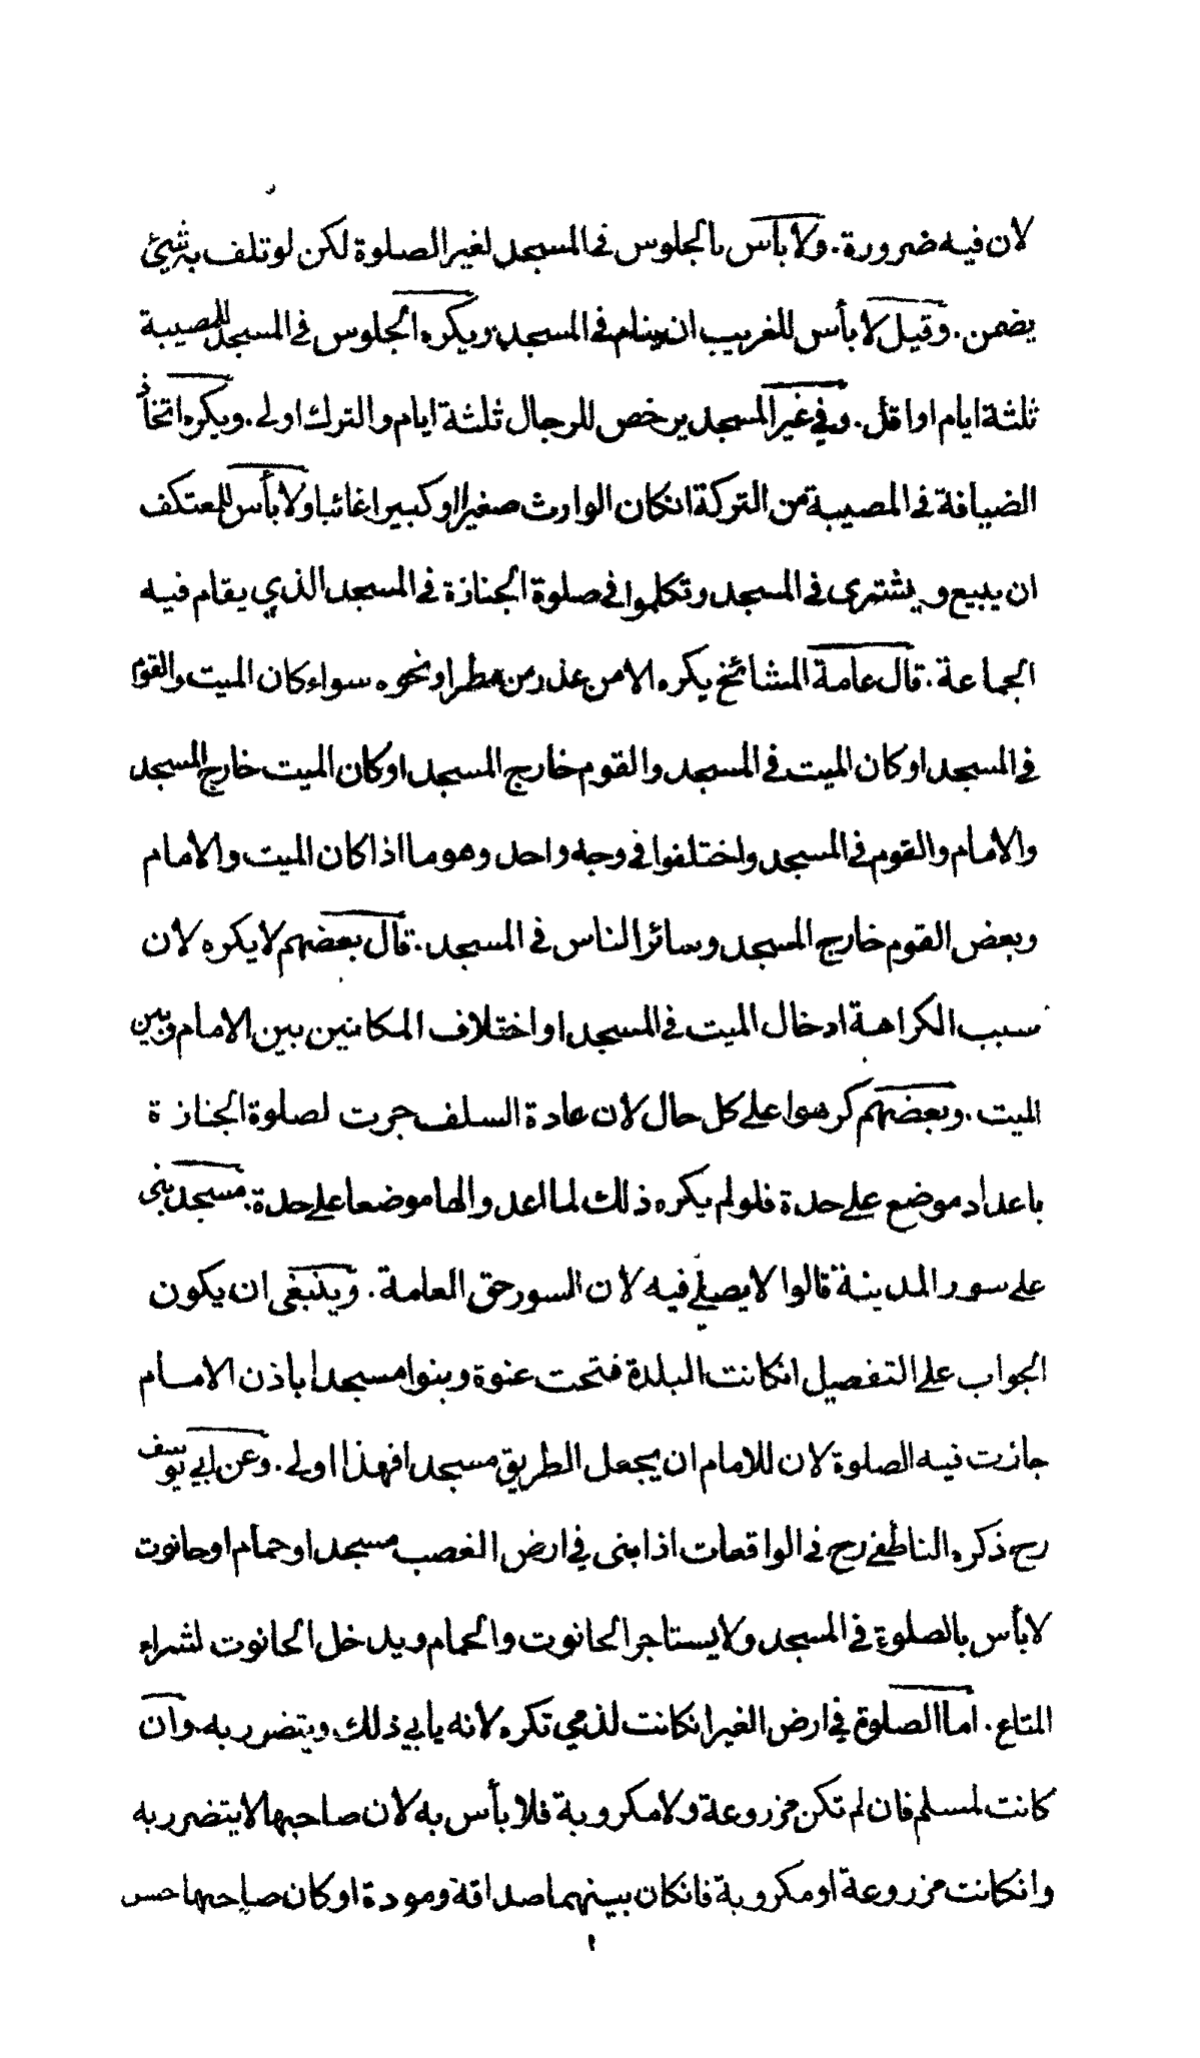 لان فيه ضرورة. ولا بأس بالجلوس فى المسجد لغير الصلوة لكن لو تلف به شيئ
يضمن. وقيل لا بأس للغريب ان ينام فى المسجد ويكره الجلوس فى المسجد للمصيبة
ثلثة ايام او اقل. وفي غير المسجد يرخص للرجال ثلثة ايام والترك اولى. ويكره اتخاذ
الضيافة فى المصيبة من التركة انكان الوارث صغيرا او كبيرا غائبا ولا بأس للمعتكف
ان يبيع ويشترى فى المسجد وتكلموا فى صلوة الجنازة فى المسجد الذي يقام فيه
الجماعة. قال عامة المشائخ يكره الا من عذر من مطر او نحوه سواء كان الميت والقوم
فى المسجد او كان الميت فى المسجد والقوم خارج المسجد او كان الميت خارج المسجد
والامام والقوم فى المسجد واختلفوا فى وجه واحد وهو ما اذا كان الميت والامام
وبعض القوم خارج المسجد وسائر الناس فى المسجد. قال بعضهم لا يكره لان
سبب الكراهة ادخال الميت فى المسجد او اختلاف المكانين بين الامام وبين
الميت. وبعضهم كرهوا على كل حال لان عادة السلف جرت لصلوة الجنازة
باعداد موضع على حدة فلو لم يكره ذلك لما اعدوا لها موضعا على حدة. مسجد بنى
على سور المدينة قالوا لا يصلي فيه لان السور حق العامة. وينبغى ان يكون
الجواب على التفصيل انكانت البلدة فتحت عنوة وبنوا مسجدا باذن الامام
جازت فيه الصلوة لان للامام ان يجعل الطريق مسجدا فهذا اولى. وعن ابي يوسف
رح ذكره الناطفي رح فى الواقعات اذا بنى في ارض الغصب مسجد او حمام او حانوت
لا بأس بالصلوة فى المسجد ولا يستاجر الحانوت والحمام ويدخل الحانوت لشراء
المتاع. اما الصلوة في ارض الغير انكانت لذمي تكره لانه يابي ذلك ويتضرر به وان
كانت لمسلم فان لم تكن مزروعة ولا مكروبة فلا بأس به لان صاحبها لا يتضرر به
وانكانت مزروعة او مكروبة فانكان بينهما صداقة ومودة او كان صاحبها حسن